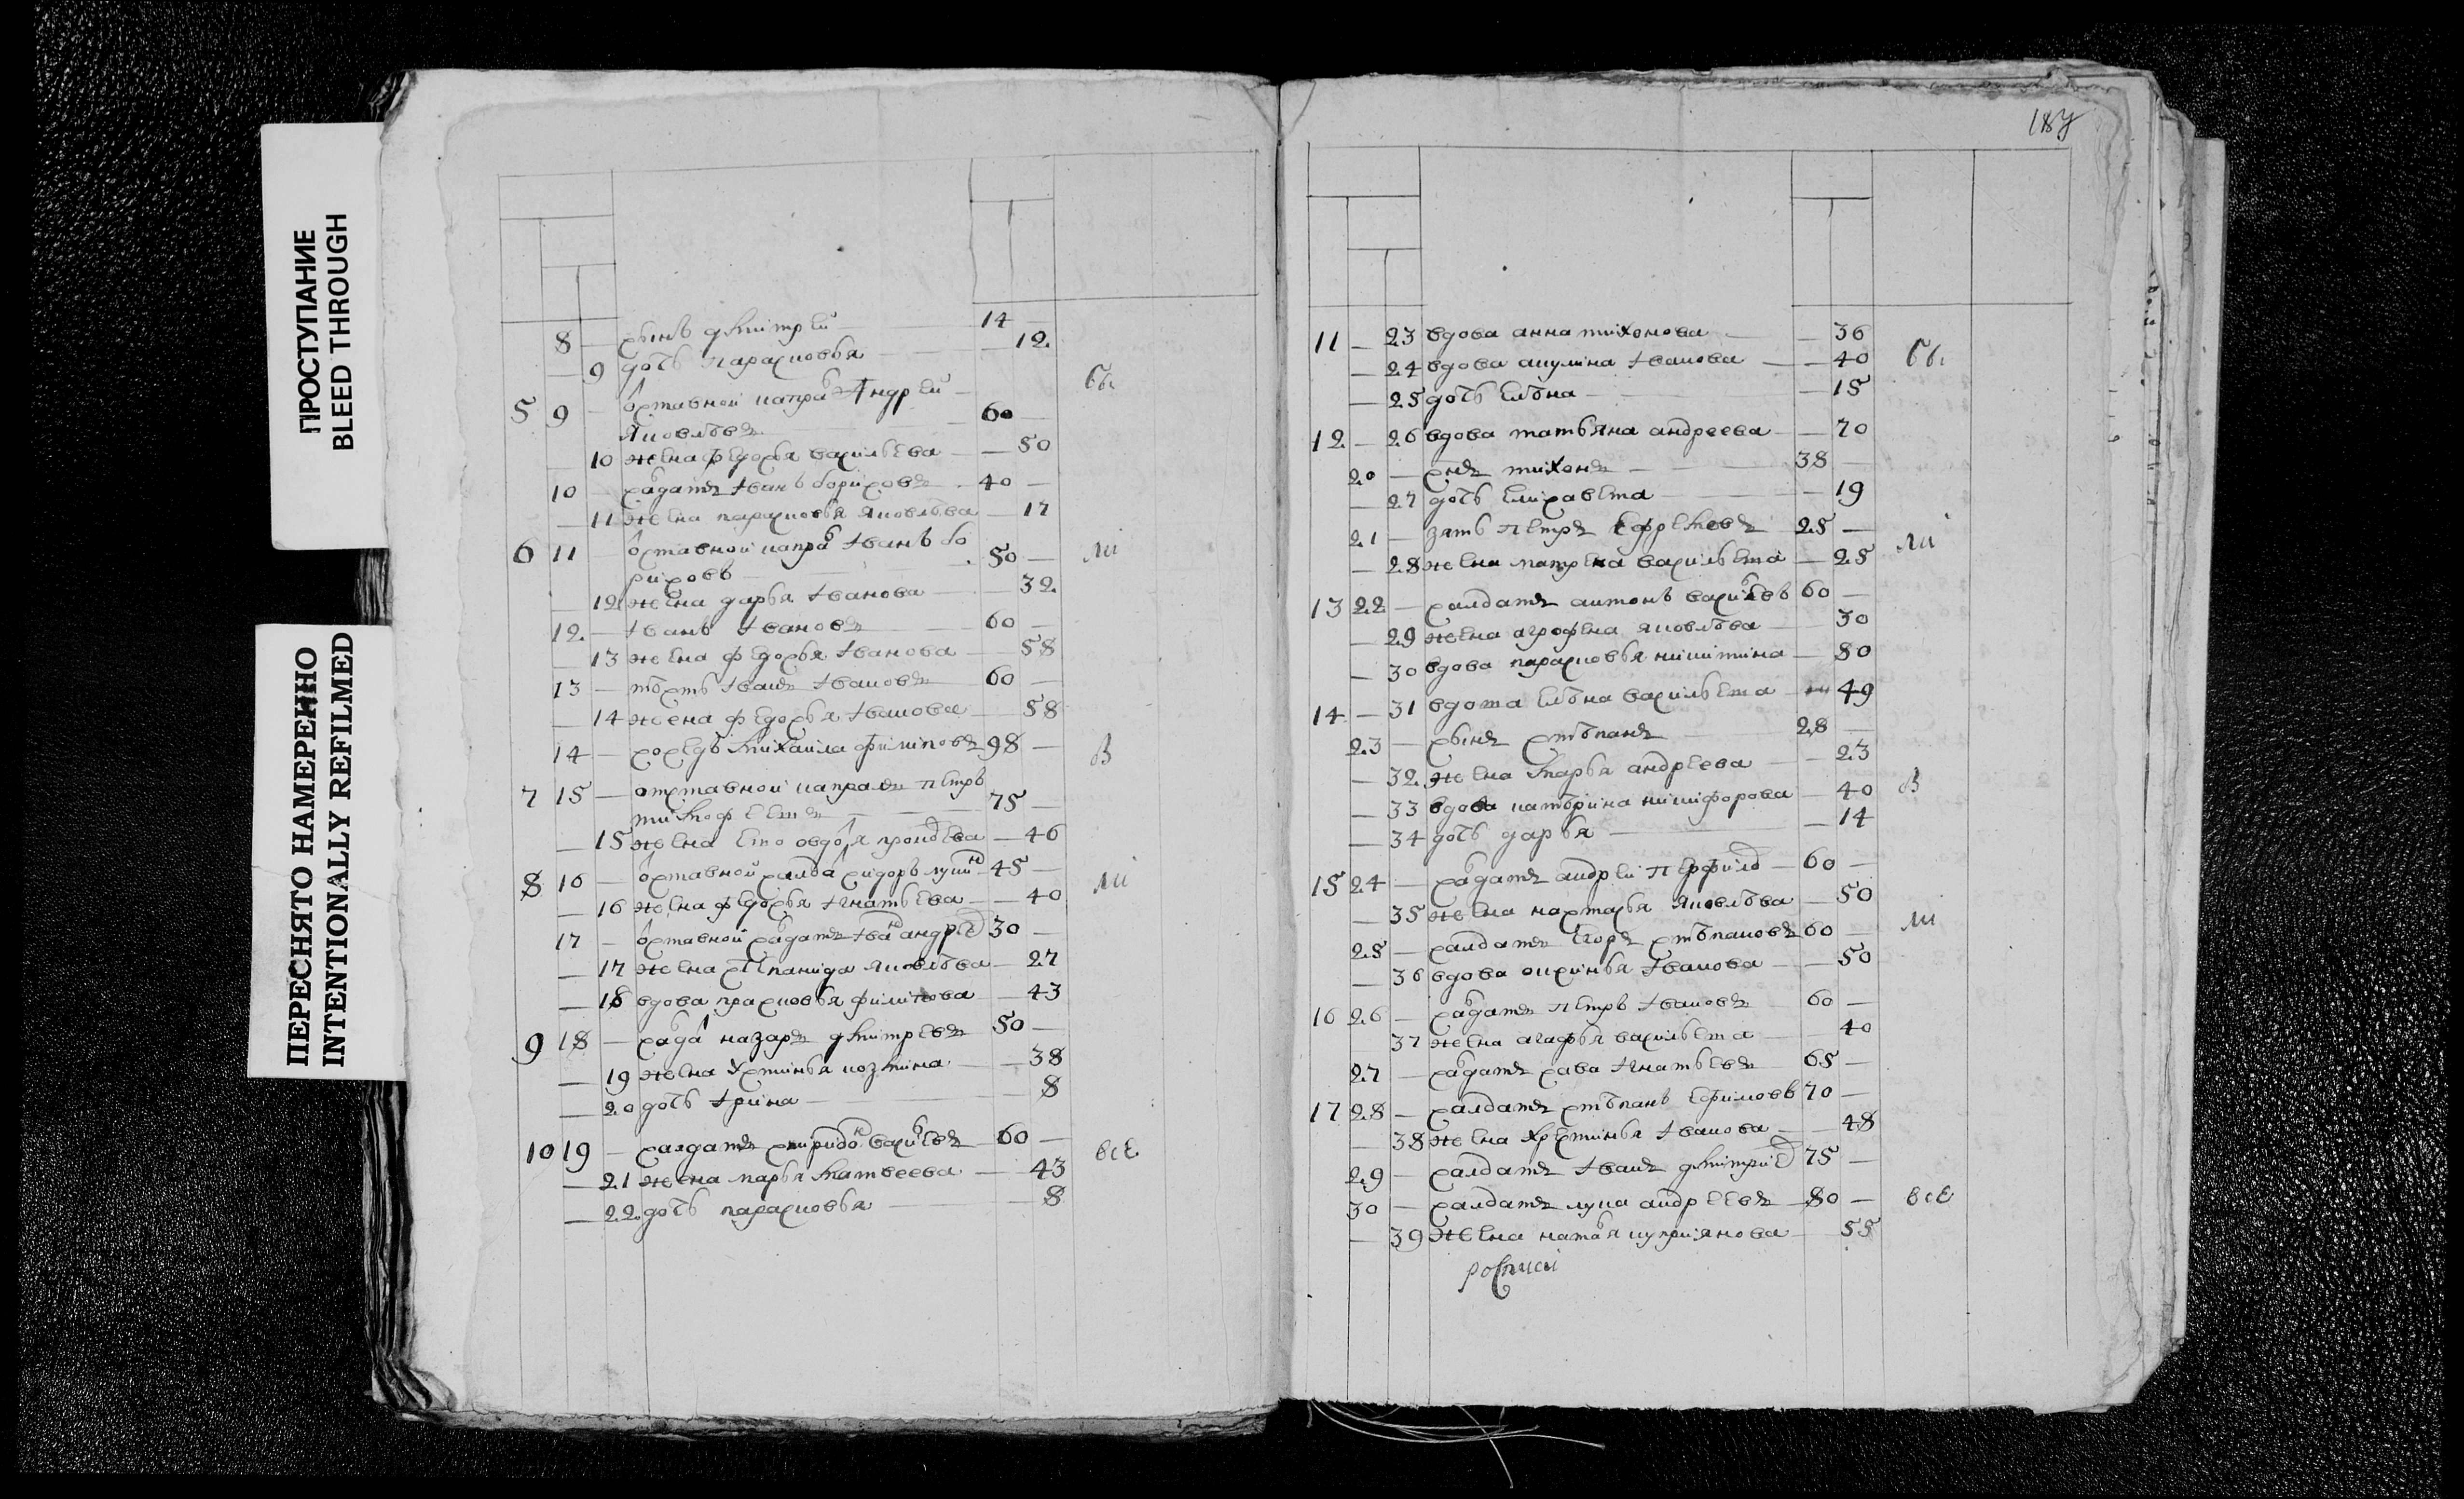 ПРОСТУПАНИЕ
BLEED THROUGH
ПЕРЕСНЯТО НАМЕРЕННО
INTENTIONALLY REFILMED
8 — сынъ дмитреи 14 —
— 9 дочь парасковья — 12
5 9 — отставной капра Андреи
яковлевъ 60 —
10 жена федосья васильева — 50
10 — салдатъ иванъ борисовъ 40 —
— 11 жена парасковья яковлева — 17
6 11 — отставной капра иванъ бо
рисовъ 50 —
— 12 жена дарья иванова — 32
12 — иванъ ивановъ 60 —
— 13 жена федосья иванова — 58
13 — тесть иванъ ивановъ 60 —
— 14 жена федосья иванова — 58
14 — соседъ михаила филиповъ 98 —
7 15 — отставной капралъ петръ
75 —
— 15 жена ево — 46
8 16 — отставной салда сидоръ 45 —
— 16 жена федосья игнатьева — 40
17 — отставной салдатъ иванъ андрее 30 —
— 17 жена степанида яковлева — 27
— 18 вдова прасковья филипова — 43
9 18 — салда назаръ дмитревъ 50 —
— 19 жена устинья козмина — 38
— 20 дочь ирина — 8
10 19 — салдатъ спиридо васильевъ 60 —
— 21 жена марья матвеева — 43
— 22 дочь парасковья — 8
бы
ли
в
ли
все
187
11 — 23 вдова анна тихонова — 36
— 24 вдова акулина иванова — 40
— 25 дочь елена — 15
12 — 26 вдова татьяна андреева — 70
20 — снъ тихонъ 38 —
— 27 дочь елисавета — 19
21 — зять петръ ефремовъ 25 —
— 28 жена матрена васильева — 25
13 22 — салдатъ антонъ васильевъ 60 —
— 29 жена агрофена яковлева — 30
— 30 вдова парасковья никитина — 80
14 — 31 вдова елена васильева — 49
23 — сынъ степанъ 28 —
— 32 жена марья андреева — 23
— 33 вдова катерина никифорова — 40
— 34 дочь дарья — 14
15 24 — салдатъ андреи перфило 60 —
— 35 жена настасья яковлева — 50
25 — салдатъ егоръ степановъ 60 —
— 36 вдова оксинья иванова — 50
16 26 — салдатъ петръ ивановъ 60 —
37 жена агафья васильева — 40
27 — салдатъ сава игнатьевъ 65 —
17 28 — салдатъ степанъ ефимовъ 70 —
— 38 жена хрестинья иванова — 48
29 — салдатъ иванъ дмитрие 75 —
30 — салдатъ лука андреевъ 80 —
— 39 жена наталья куприянова 55
росписи
бы
ли
в
ли
все